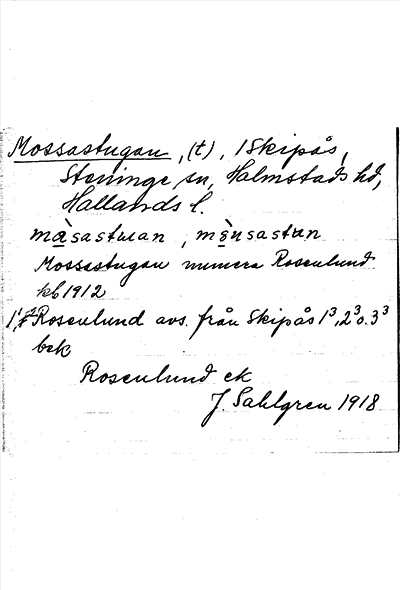 Mossastugan, (t), 1 Skipås,
Steninge sn, Halmstads hd,
Hallands l.
màsastuan, mò̤usastun
Mossastugan numera Rosenlund
kb 1912
Rosenlund avs. från Skipås 1³, 2³ o. 3³
bek
Rosenlund ek
J. Sahlgren 1918